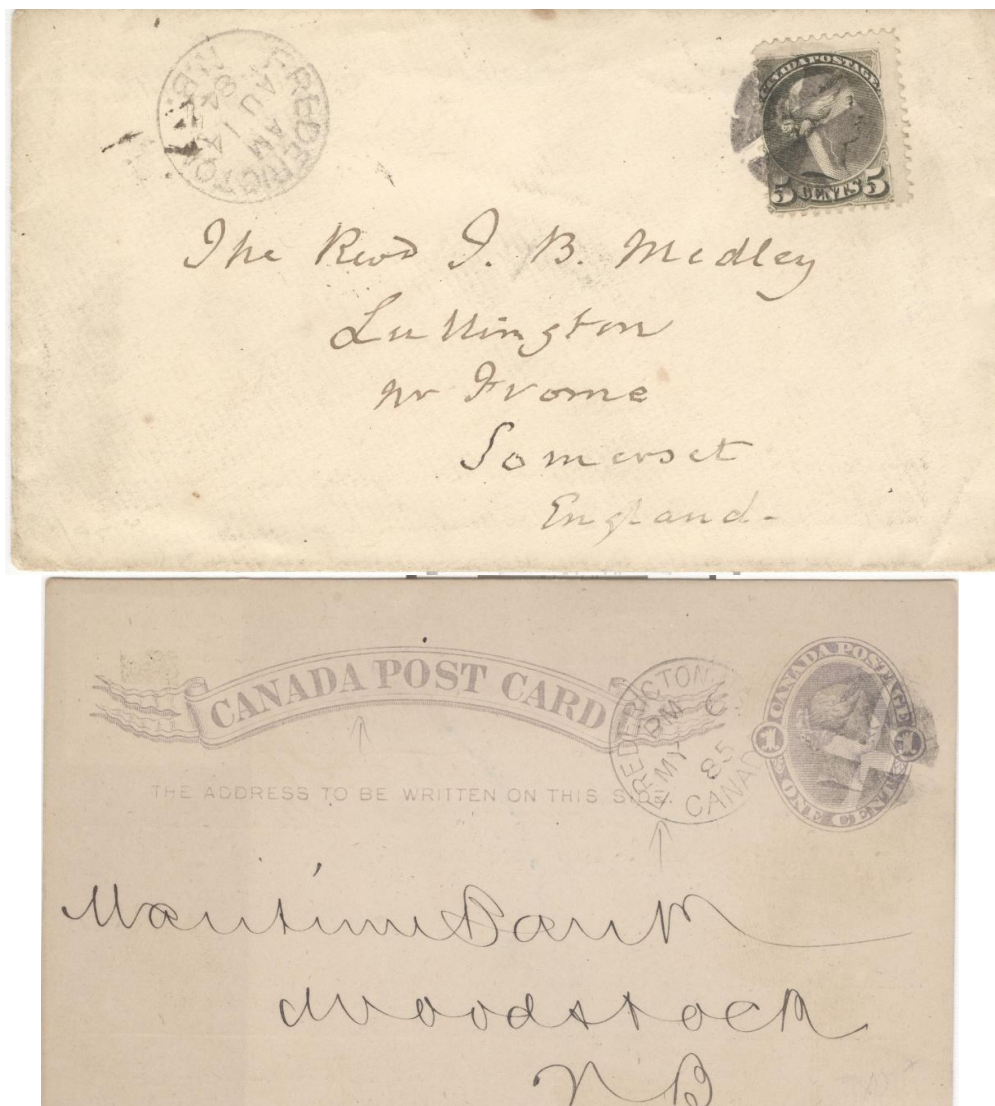 FREDERICTON N.B.
AM
AU 14
84
CANADA POSTAGE
5 CENTS 5
The Revd J. B. Medley
Lullington
nr Frome
Somerset
England-
CANADA POST CARD
THE ADDRESS TO BE WRITTEN ON THIS SIDE.
FREDERICTON
PM
MY 6
85
CANADA
CANADA POSTAGE
1 1
ONE CENT
Maritime Bank
Woodstock
N B